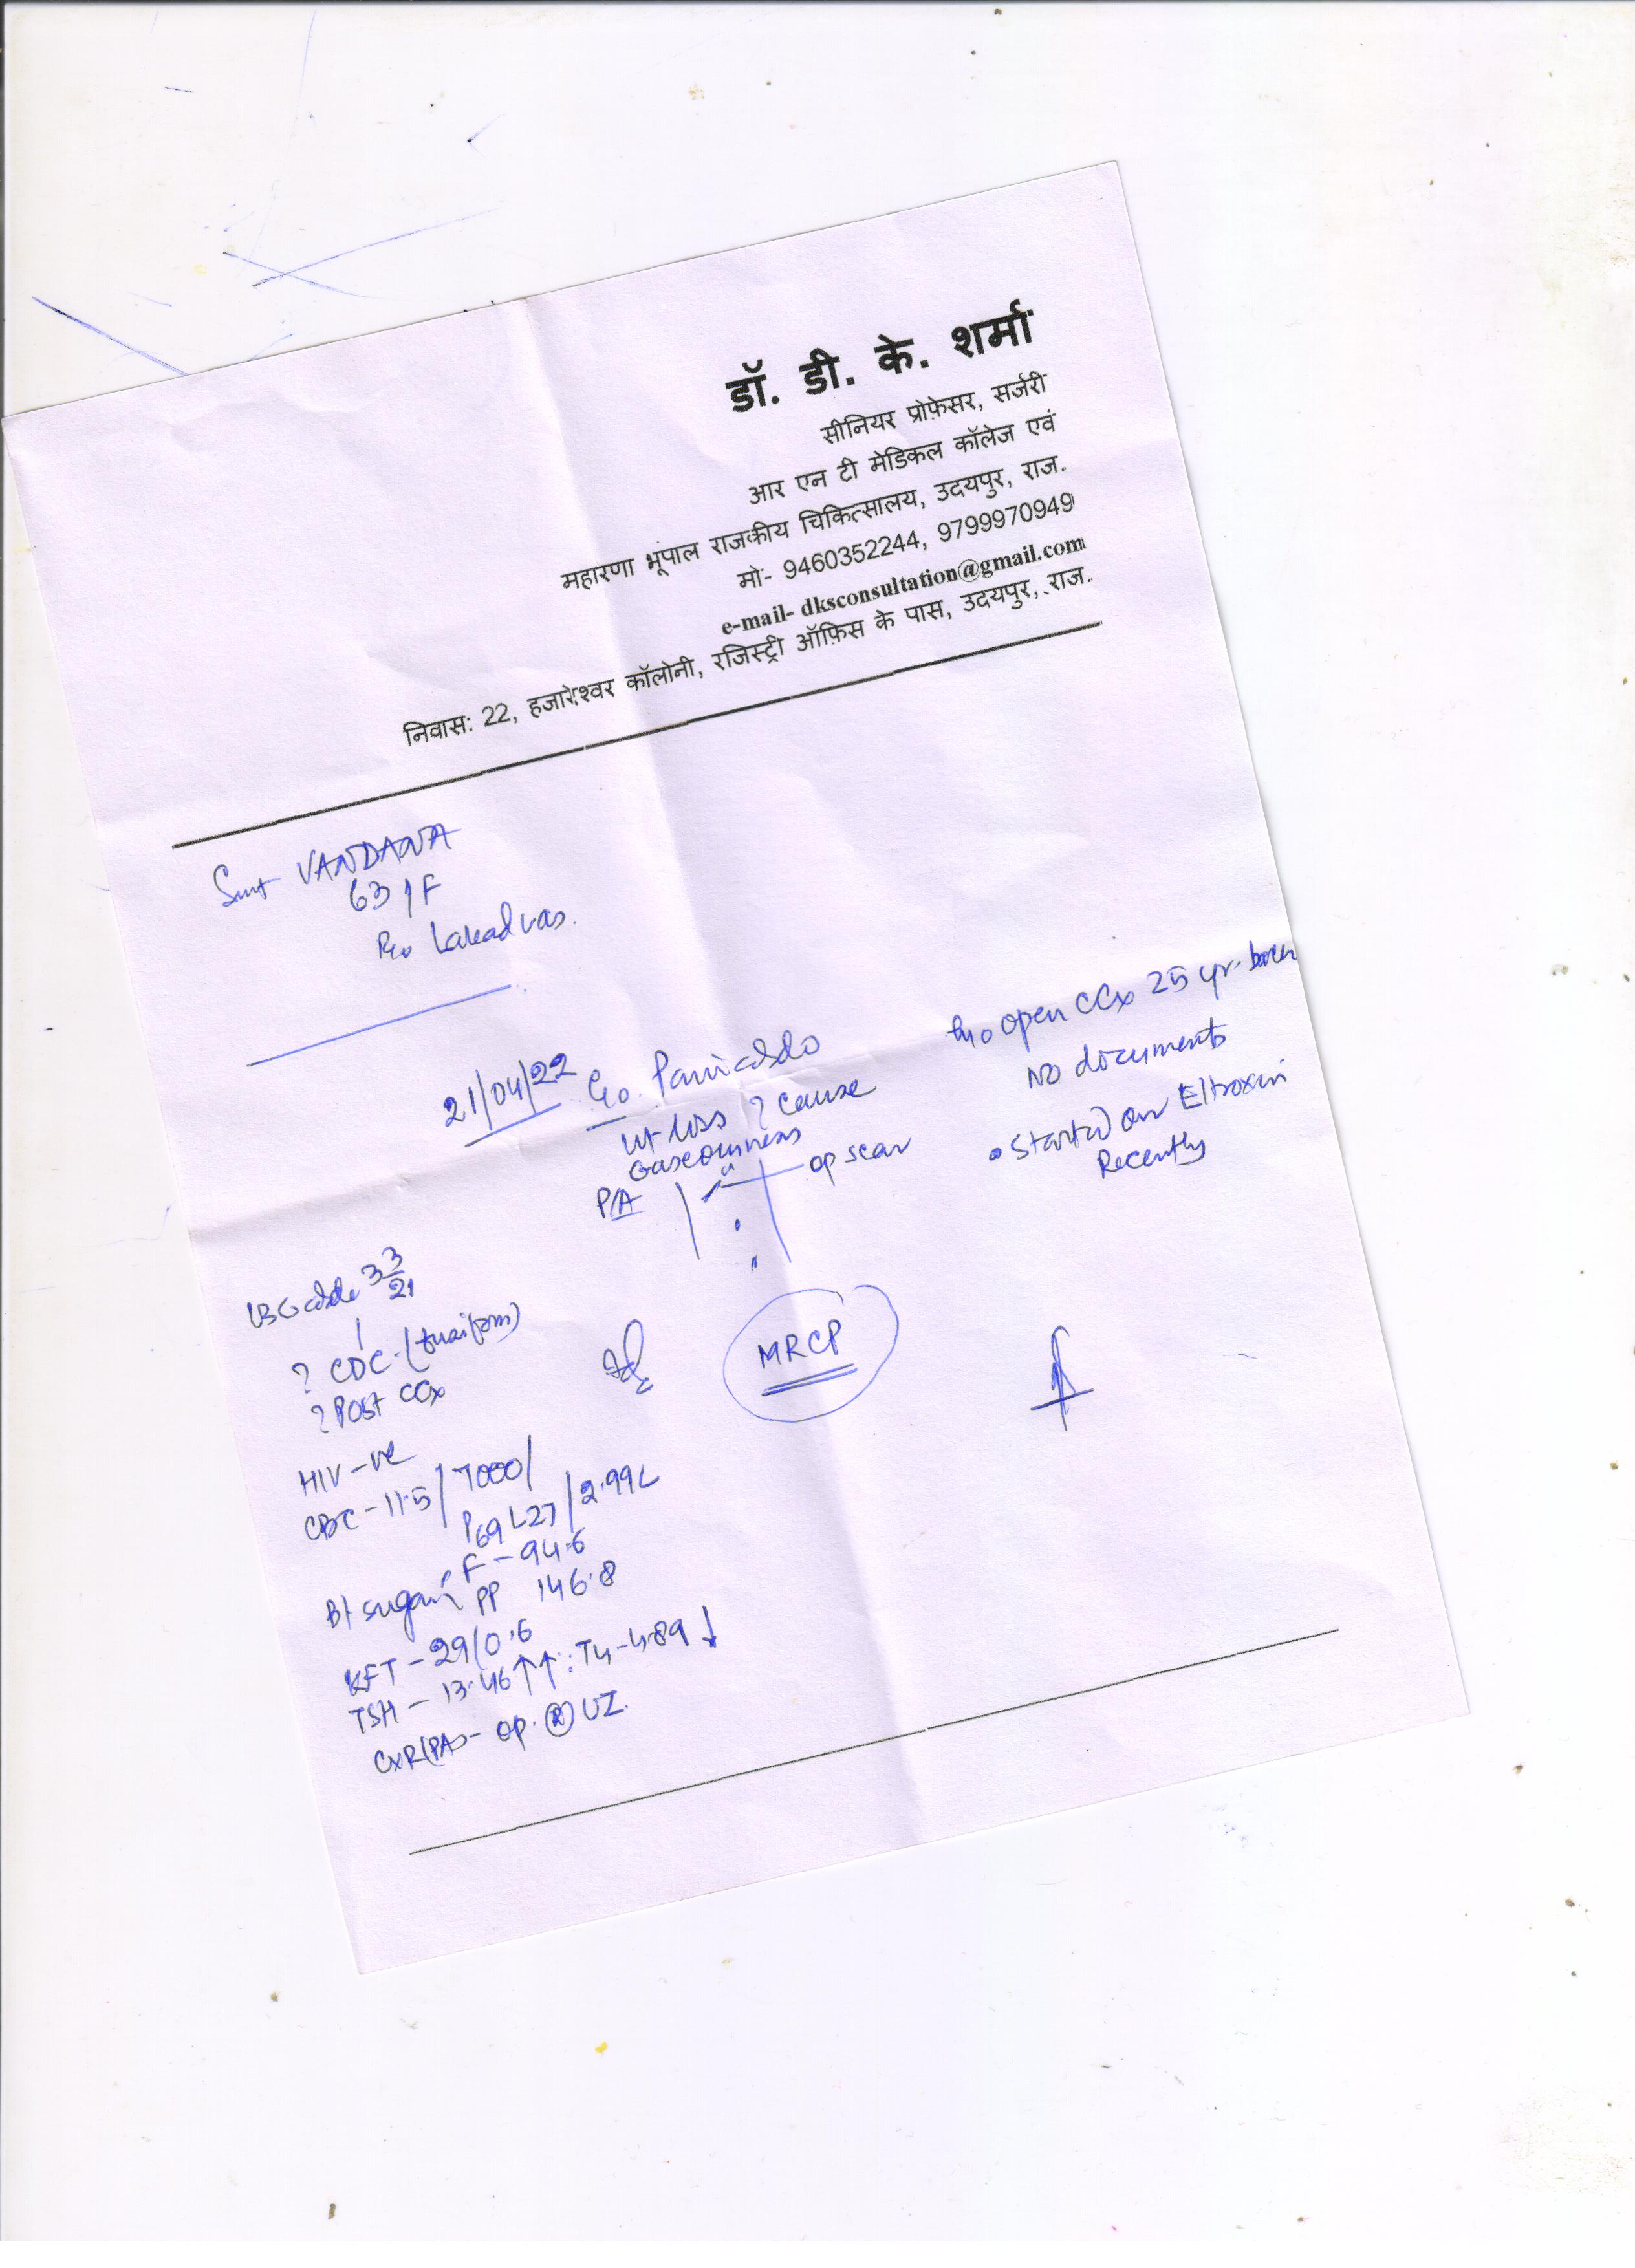 डॉ. डी. के. शर्मा
सीनियर प्रोफ़ेसर, सर्जरी
आर एन टी मेडिकल कॉलेज एवं
महारणा भूपाल राजकीय चिकित्सालय, उदयपुर, राज.
मो- 9460352244, 9799970949
e-mail- dksconsultation@gmail.com
निवास: 22, हजारेश्वर कॉलोनी, रजिस्ट्री ऑफ़िस के पास, उदयपुर, राज.
Smt VANDANA
63/F
R/o Lakadvas.
21/04/22 C/o. Pain abdo
wt loss ? cause
Gaseousness
P/A
op scar
H/o open CCx 25 yr. back
NO documents
• Started on Eltroxin
Recently
USG abde 3/3/21
? CDC- (fusiform)
? Post CCx
HIV -ve
CBC - 11.5 / 7000/
P69 L27 / 2.99L
Bl sugar F - 94.6
PP 146.8
KFT - 29/0.6
TSH - 13.46 ↑↑ : T4 - 4.89 ↓
CxR(PA) - op. Ⓡ UZ.
Adv
MRCP